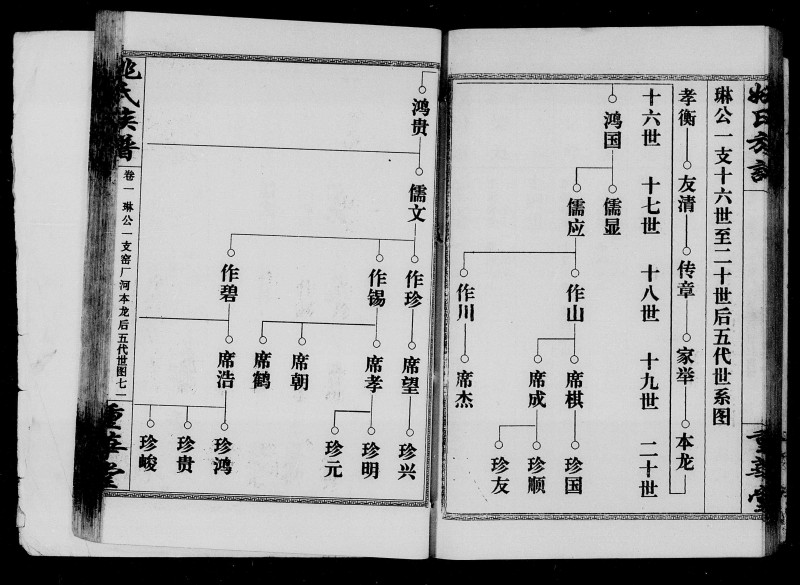 琳公一支十六世至二十世后五代世系图
孝衡 友清 传章 家举 本龙
十六世 十七世 十八世 十九世 二十世
鸿国
儒显
儒应
作山
作川
席棋
席成
席杰
珍国
珍顺
珍友
鸿贵
儒文
作珍
作锡
作碧
席望
席孝
席朝
席鹤
席浩
珍兴
珍明
珍元
珍鸿
珍贵
珍峻
姚氏族谱
卷一 琳公一支窑厂河本龙后五代世图七一
重华堂